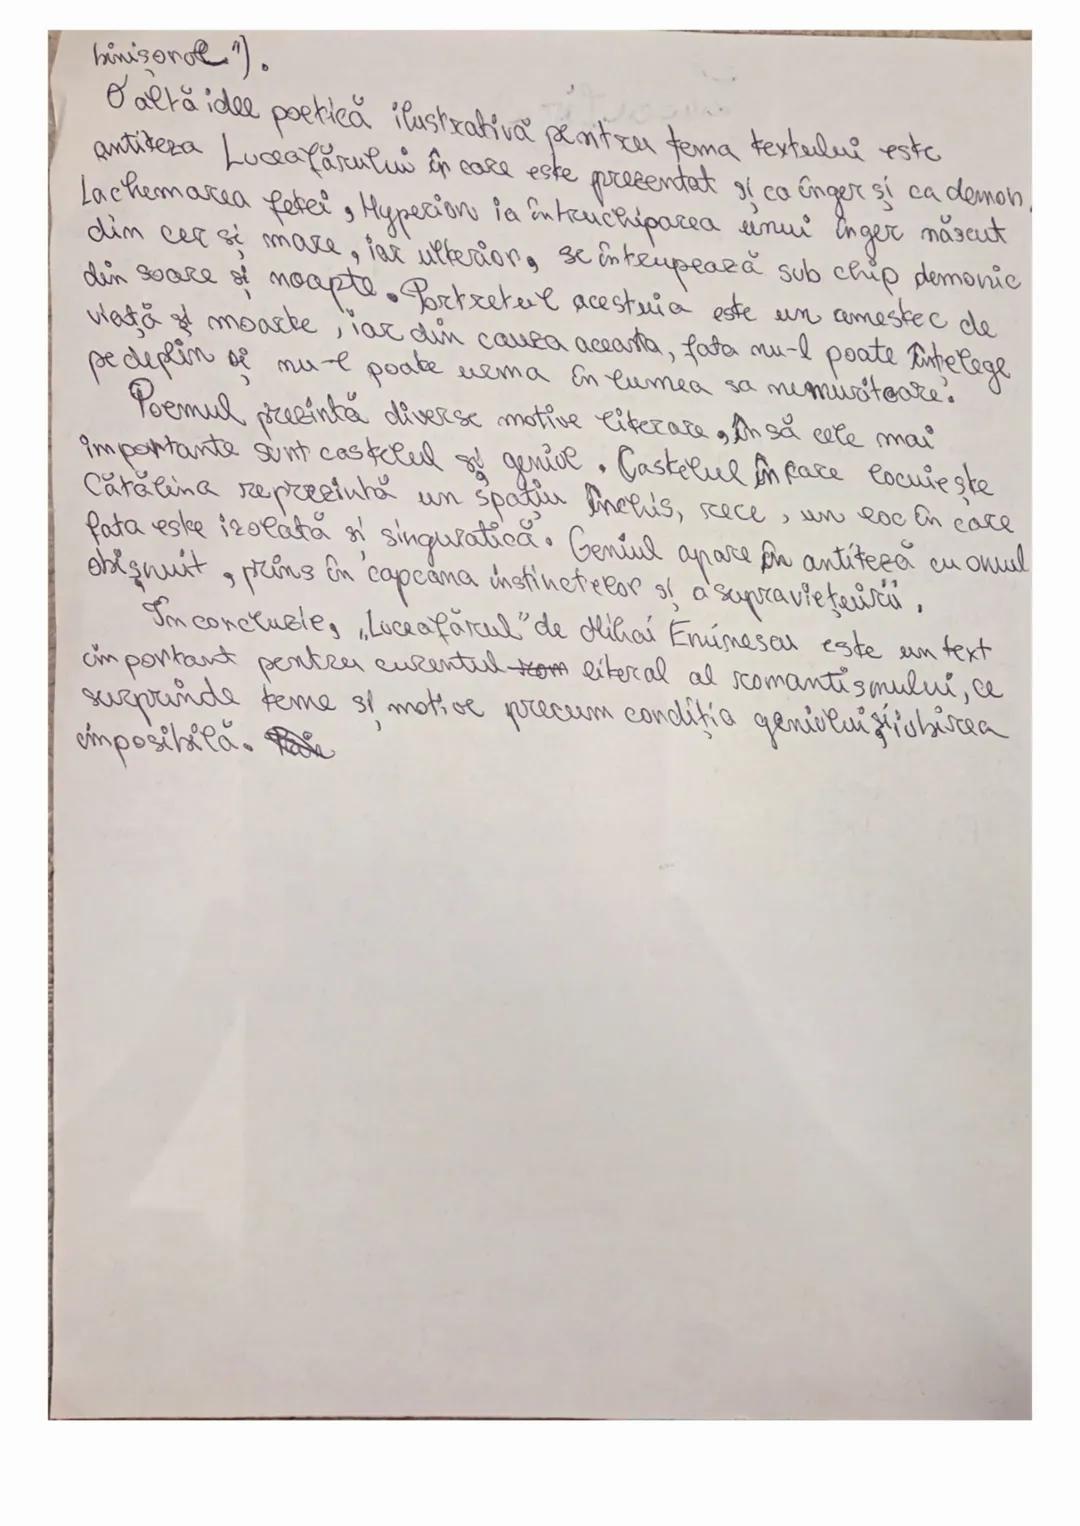 binișorel").
O altă idee poetică ilustrativă pentru tema textului este
antiteza Luceafărului în care este prezentat și ca înger și ca demon.
La chemarea fetei, Hyperion ia întruchiparea unui înger născut
din cer și mare, iar ulterior, se întrupează sub chip demonic
din soare și noapte. Portretul acestuia este un amestec de
viață și moarte, iar din cauza aceasta, fata nu-l poate înțelege
pe deplin și nu-l poate urma în lumea sa nemuritoare.
Poemul prezintă diverse motive literare, însă cele mai
importante sunt castelul și geniul. Castelul în care locuiește
Cătălina reprezintă un spațiu închis, rece, un loc în care
fata este izolată și singuratică. Geniul apare în antiteză cu omul
obișnuit, prins în capcana instinctelor și a supraviețuirii.
În concluzie, „Luceafărul" de Mihai Eminescu este un text
important pentru curentul rom literal al romantismului, ce
surprinde teme și motive precum condiția geniului și iubirea
imposibilă.